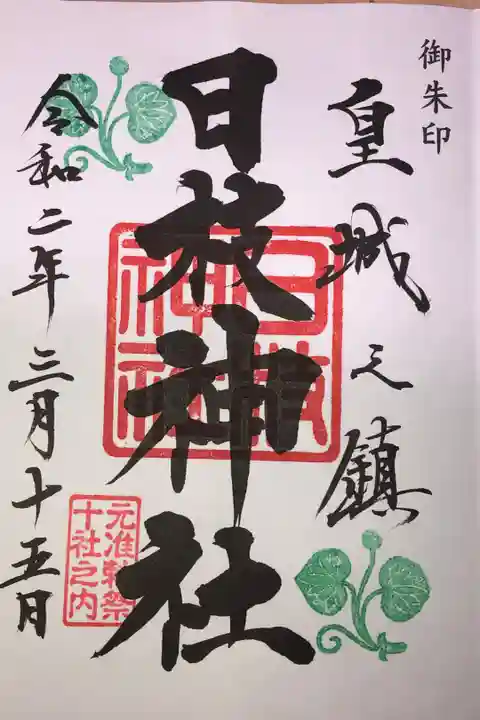 御朱印
皇城之鎮
日枝神社
日枝神社
元准勅祭
十社之内
令和二年三月十五日